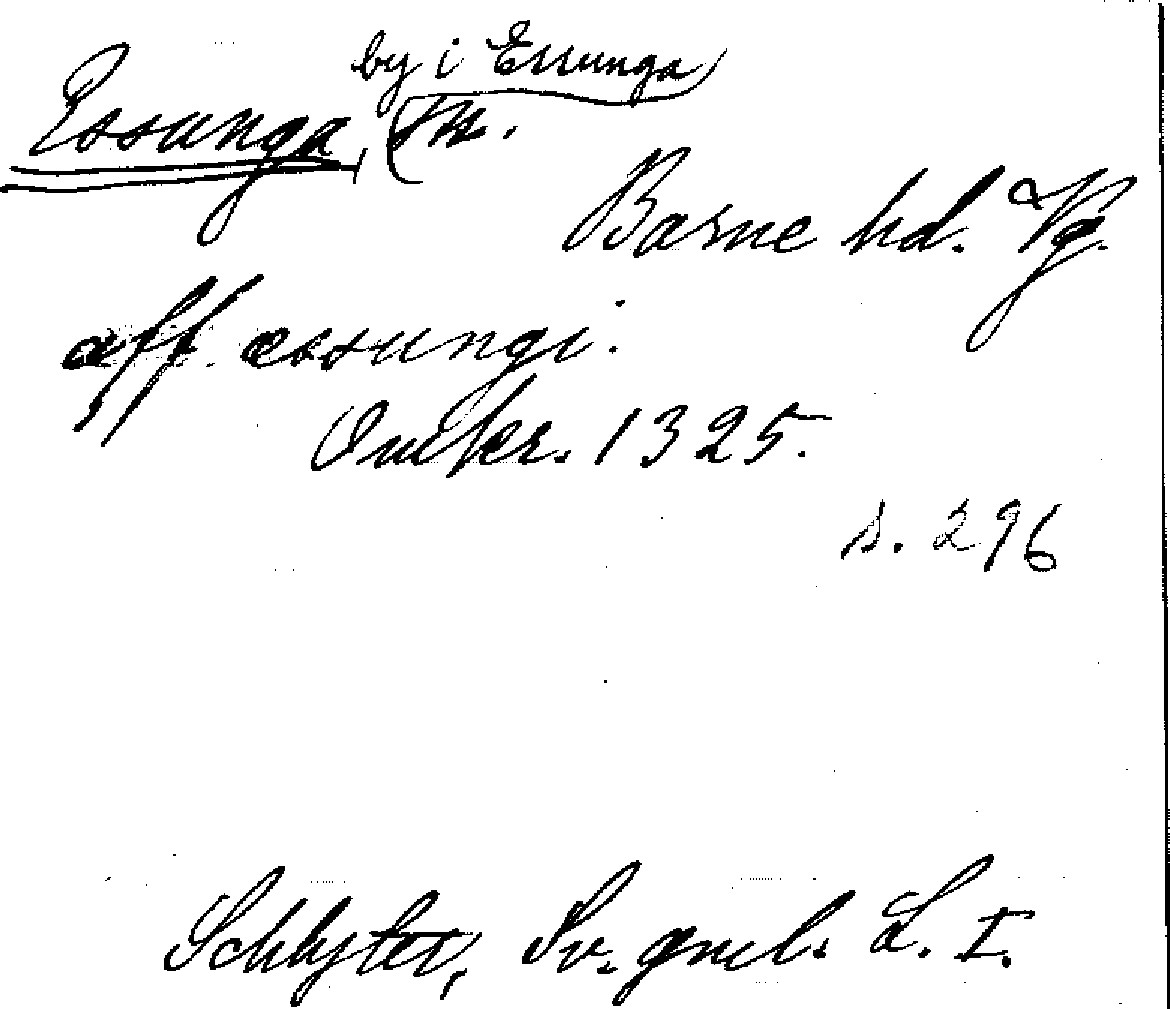 by i Essunga
Essunga, sn.
Barne hd. Vg.
aff. essungi.
Omkr. 1325.
s. 296
Schlyter, Sv. gml. L. I.